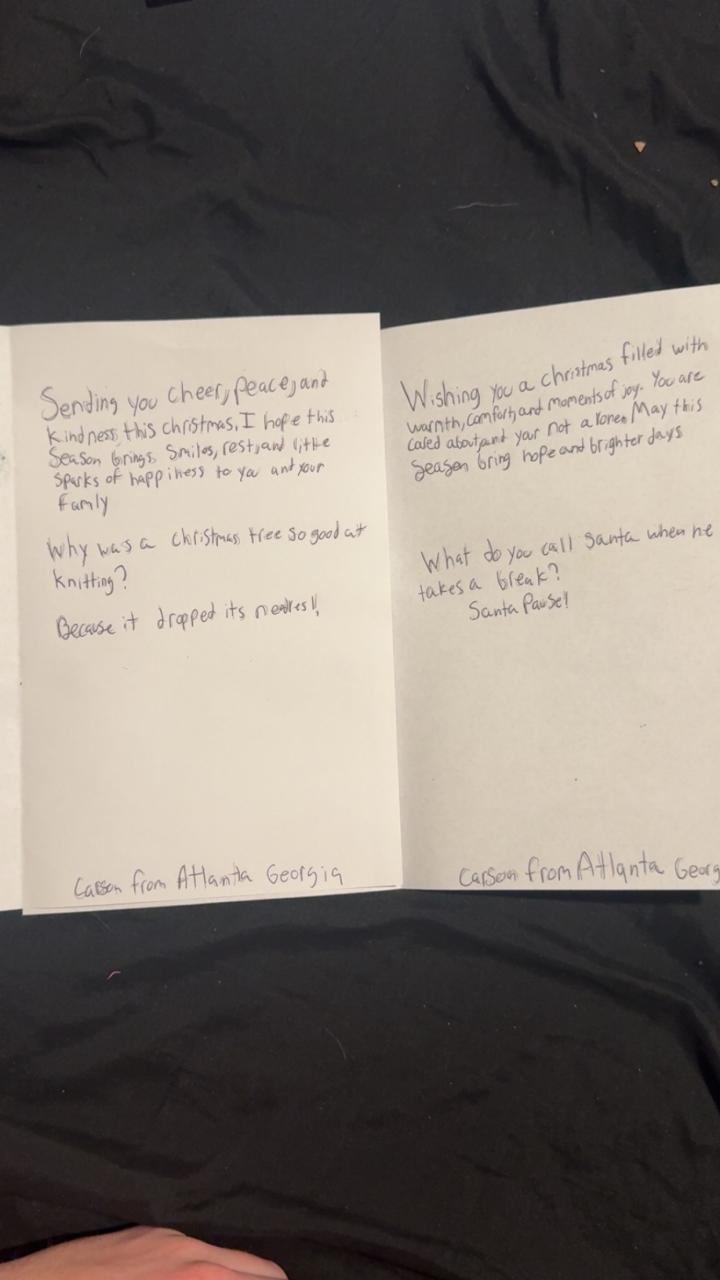 Sending you cheer, peace, and
kindness this christmas, I hope this
Season brings smiles, rest, and little
sparks of happiness to you and your
family
Why was a christmas tree so good at
knitting?
Because it dropped its needles!!
Carson from Atlanta Georgia
Wishing you a christmas filled with
warmth, comfort, and moments of joy. You are
cared about, and your not alone. May this
Season bring hope and brighter days
What do you call Santa when he
takes a break?
Santa Pause!
Carson from Atlanta Georg